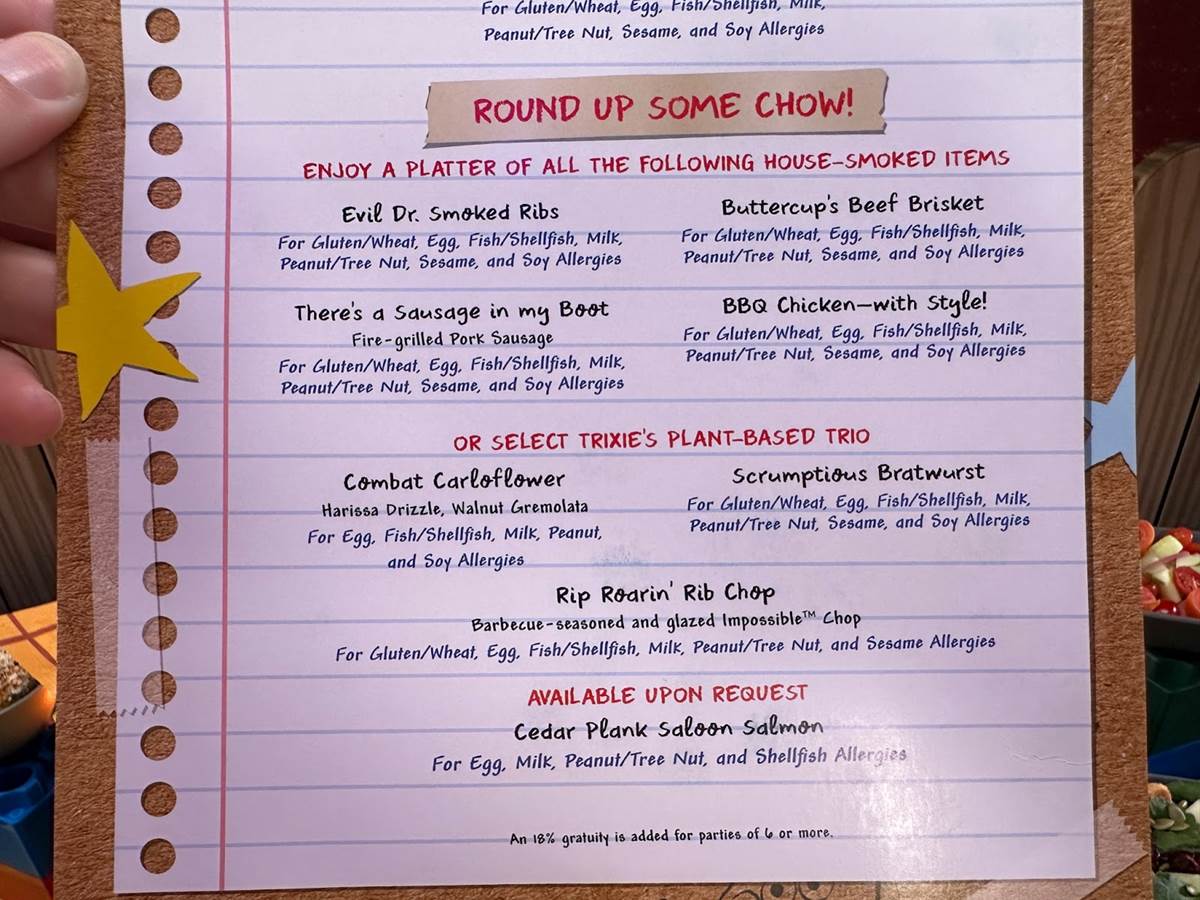 For Gluten/Wheat, Egg, Fish/Shellfish, Milk,
Peanut/Tree Nut, Sesame, and Soy Allergies
ROUND UP SOME CHOW!
ENJOY A PLATTER OF ALL THE FOLLOWING HOUSE-SMOKED ITEMS
Evil Dr. Smoked Ribs
For Gluten/Wheat, Egg, Fish/Shellfish, Milk,
Peanut/Tree Nut, Sesame, and Soy Allergies
Buttercup's Beef Brisket
For Gluten/Wheat, Egg, Fish/Shellfish, Milk,
Peanut/Tree Nut, Sesame, and Soy Allergies
There's a Sausage in my Boot
Fire-grilled Pork Sausage
For Gluten/Wheat, Egg, Fish/Shellfish, Milk,
Peanut/Tree Nut, Sesame, and Soy Allergies
BBQ Chicken—with Style!
For Gluten/Wheat, Egg, Fish/Shellfish, Milk,
Peanut/Tree Nut, Sesame, and Soy Allergies
OR SELECT TRIXIE'S PLANT-BASED TRIO
Combat Carloflower
Harissa Drizzle, Walnut Gremolata
For Egg, Fish/Shellfish, Milk, Peanut,
and Soy Allergies
Scrumptious Bratwurst
For Gluten/Wheat, Egg, Fish/Shellfish, Milk,
Peanut/Tree Nut, Sesame, and Soy Allergies
Rip Roarin' Rib Chop
Barbecue-seasoned and glazed Impossible™ Chop
For Gluten/Wheat, Egg, Fish/Shellfish, Milk, Peanut/Tree Nut, and Sesame Allergies
AVAILABLE UPON REQUEST
Cedar Plank Saloon Salmon
For Egg, Milk, Peanut/Tree Nut, and Shellfish Allergies
An 18% gratuity is added for parties of 6 or more.